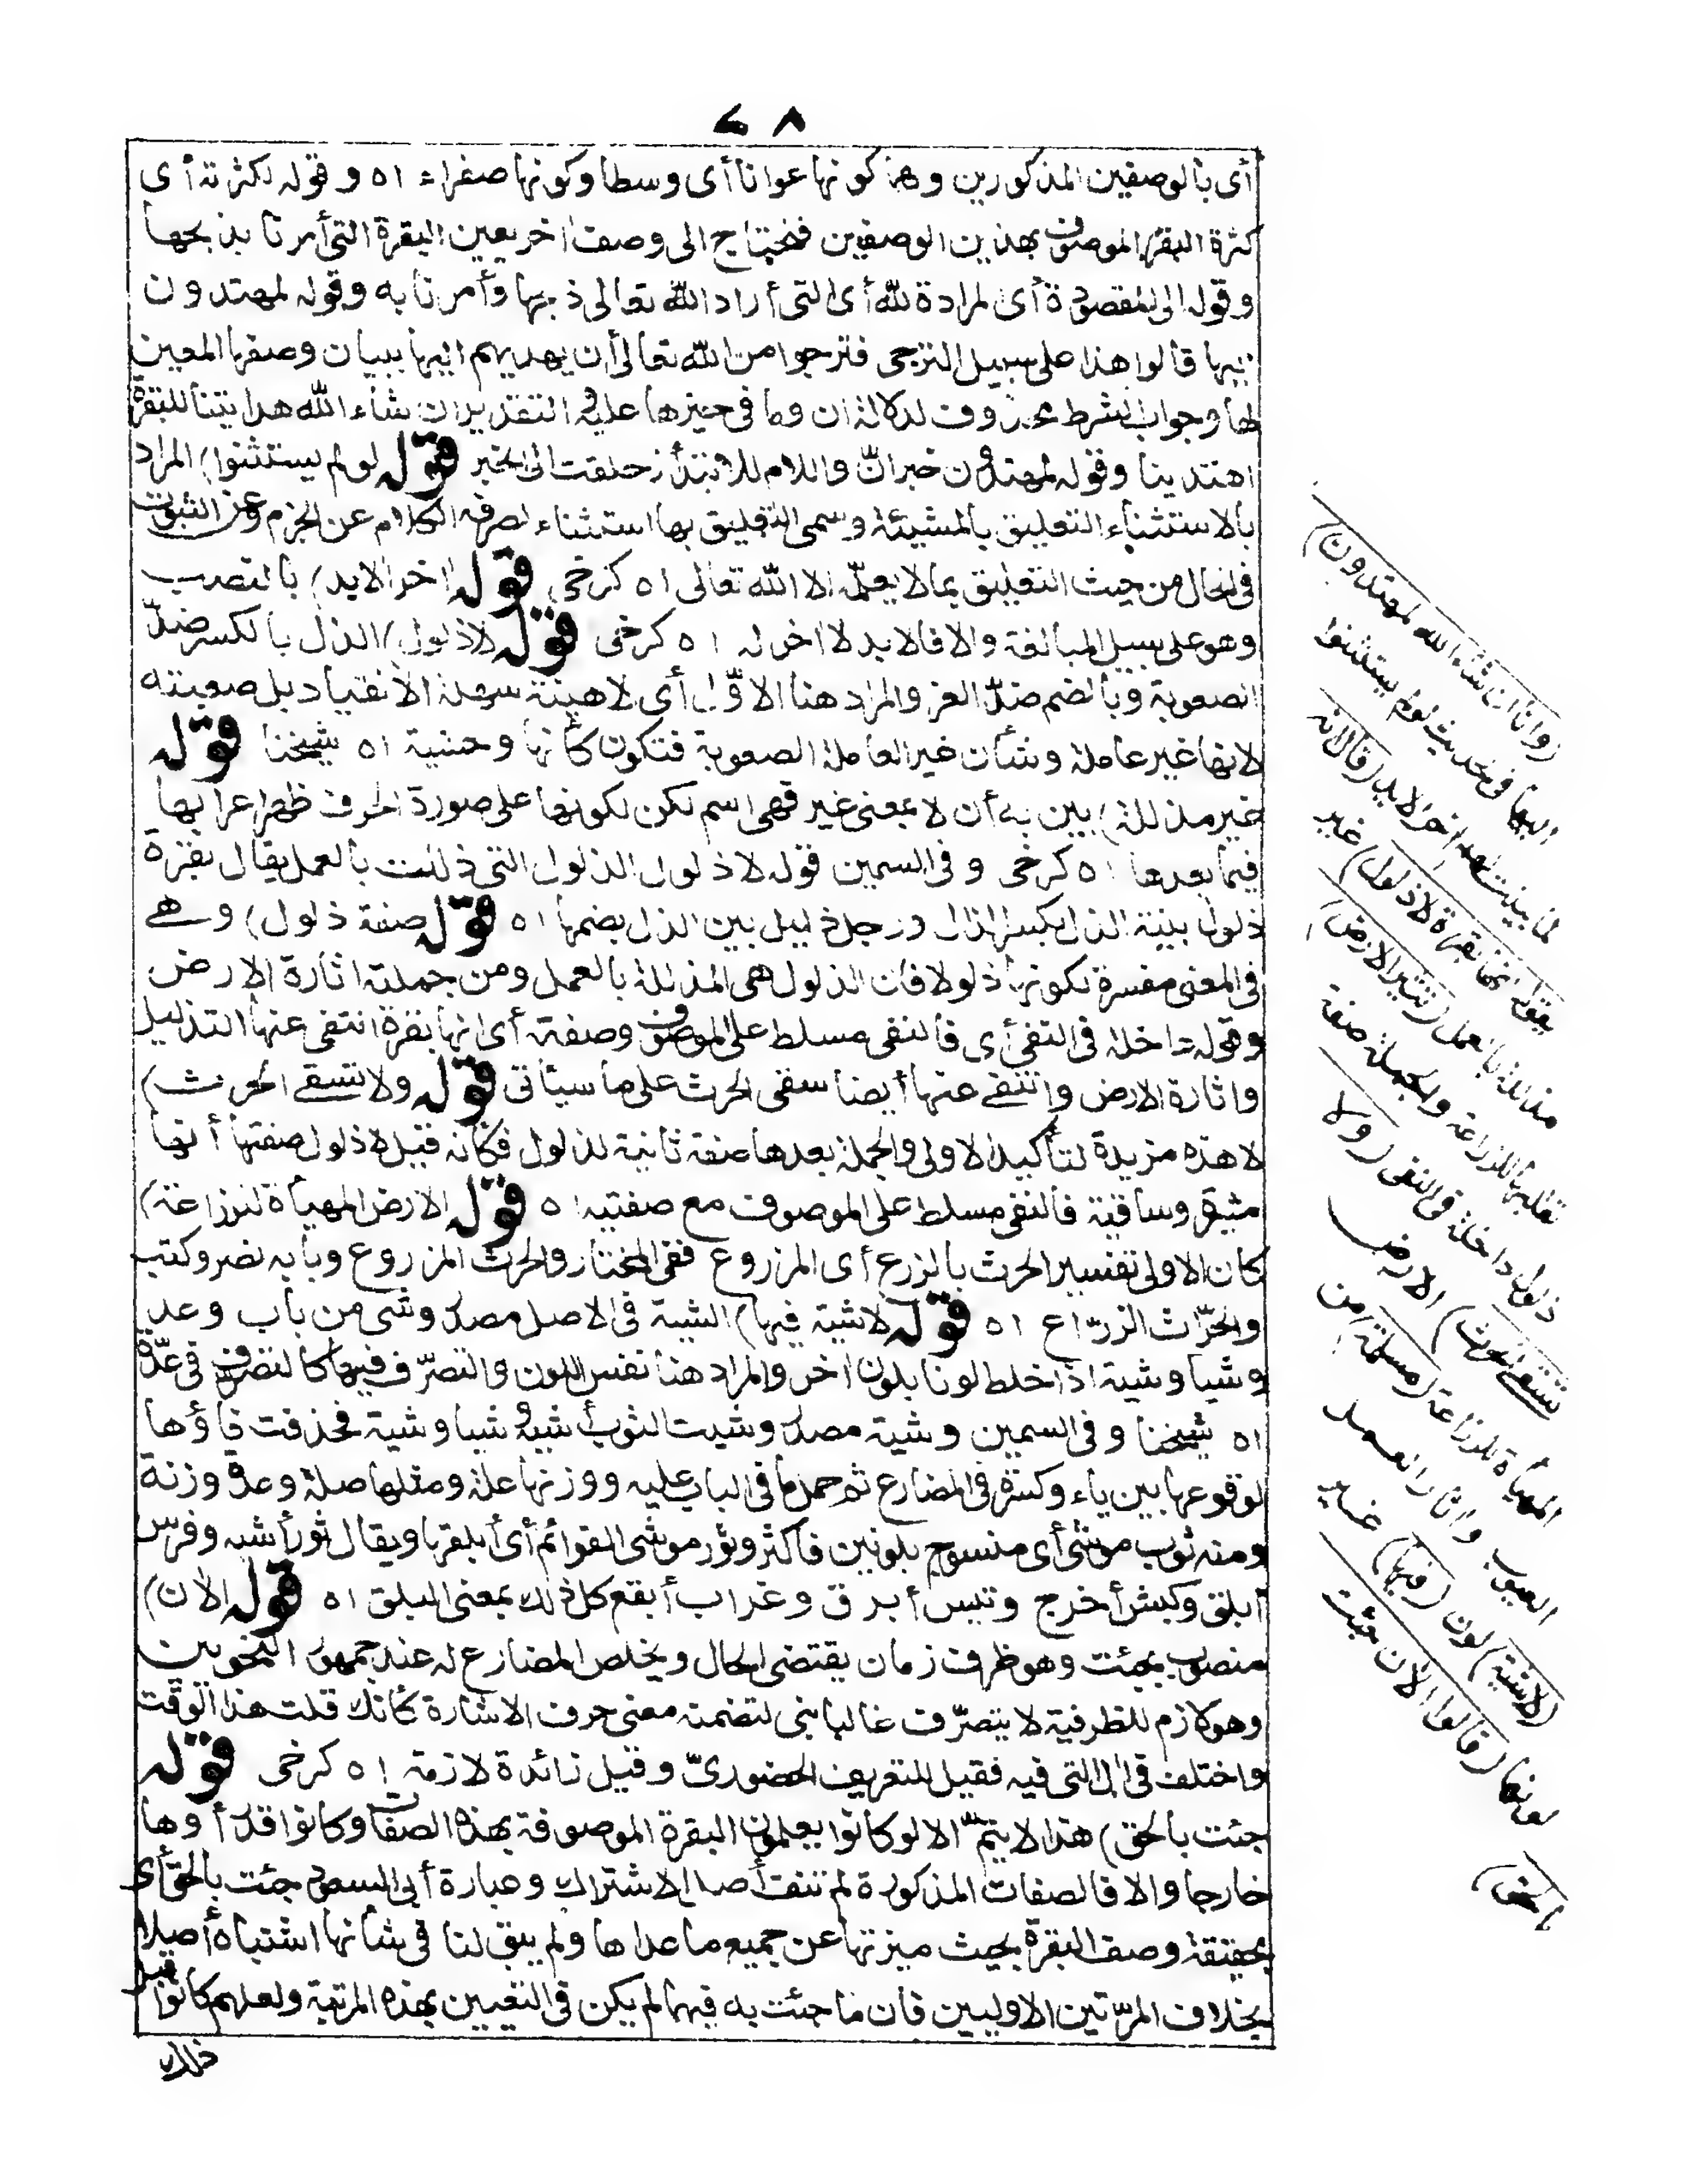 ٧٨
أى بالوصفين المذكورين وهما كونها عوانا أى وسطا وكونها صفراء اه وقوله لكثرته أى
كثرة البقر الموصوف بهذين الوصفين فنحتاج الى وصف اخر يعين البقرة التى أمرنا بذبحها
وقوله الى المقصودة أى المرادة لله أى التى أراد الله تعالى ذبحها وأمرنا به وقوله لمهتدون
اليها قالوا هذا على سبيل الترجى فترجوا من الله تعالى أن يهديهم اليها ببيان وصفها المعين
لها وجواب الشرط محذوف لدلالة ان وما فى حيزها عليه التقدير ان شاء الله هدايتنا للبقرة
اهتدينا وقوله لمهتدون خبر انّ واللام للابتداء زحلقت الى الخبر قوله لو لم يستثنوا) المراد
بالاستثناء التعليق بالمشيئة وسمى التعليق بها استثناء لصرفه الكلام عن الجزم وعن الثبوت
فى الحال من حيث التعليق بما لا يعلمه الا الله تعالى اه كرخى قوله اخر الابد) بالنصب
وهو على سبيل المبالغة والا فالابد لا اخر له اه كرخى قوله لا ذلول) الذل بالكسر ضدّ
الصعوبة وبالضم ضدّ العز والمراد هنا الاوّل أى لا هينة سهلة الانقياد بل صعبته
لانها غير عاملة وشأن غير العاملة الصعوبة فتكون كأنها وحشية اه شيخنا قوله
غير مذللة) بين به أن لا بمعنى غير فهى اسم لكن لكونها على صورة الحرف ظهر اعرابها
فيما بعدها اه كرخى وفى السمين قوله لا ذلول الذلول التى ذللت بالعمل يقال بقرة
ذلول بينة الذل بكسر الذال ورجل ذليل بين الذل بضمها اه قوله صفة ذلول) وهى
فى المعنى مفسرة لكونها ذلولا فان الذلول هى المذللة بالعمل ومن جملته اثارة الارض
وقوله داخلة فى النفى أى فالنفى مسلط على الموصوف وصفته أى انها بقرة انتفى عنها التذليل
واثارة الارض وانتفى عنها أيضا سقى الحرث على ما سيأتى قوله ولا تسقى الحرث)
لا هذه مزيدة لتأكيد الاولى والجملة بعدها صفة ثانية لذلول فكأنه قيل لا ذلول صفتها أنها
مثيرة وساقية فالنفى مسلط على الموصوف مع صفتيه اه قوله الارض المهيأة للزراعة)
كان الاولى تفسير الحرث بالزرع أى المزروع ففى المختار والحرث المزروع وبابه نصر وكتب
والحرّاث الزرّاع اه قوله لاشية فيها) الشية فى الاصل مصدر وشى من باب وعد
وشيا وشية اذا خلط لونا بلون اخر والمراد هنا نفس اللون والتصرّف فيها كالتصرف فى عدّة
اه شيخنا وفى السمين وشية مصدر وشيت الثوب أشيه وشيا وشية فحذفت فاؤها
لوقوعها بين ياء وكسرة فى المضارع ثم حمل ما فى الباب عليه ووزنها علة ومثلها صلة وعدة وزنة
ومنه ثوب موشى أى منسوج بلونين فأكثر وثور موشى القوائم أى أبلقها ويقال ثور أشيه وفرس
أبلق وكبش أخرج وتيس أبرق وغراب أبقع كل ذلك بمعنى البلق اه قوله الان)
منصوب بجئت وهو ظرف زمان يقتضى الحال ويخلص المضارع له عند جمهور النحويين
وهو لازم للظرفية لا يتصرّف غالبا بنى لتضمنه معنى حرف الاشارة كأنك قلت هذا الوقت
واختلف فى ال التى فيه فقيل للتعريف الحضورىّ وقيل زائدة لازمة اه كرخى قوله
جئت بالحق) هذا لا يتمّ الا لو كانوا يعلمون البقرة الموصوفة بهذه الصفات وكانوا قد رأوها
خارجا والا فالصفات المذكورة لم تنف أصل الاشتراك وعبارة أبى السعود جئت بالحق أى
بحقيقة وصف البقرة بحيث ميزتها عن جميع ما عداها ولم يبق لنا فى شأنها اشتباه أصلا
بخلاف المرّتين الاوليين فان ما جئت به فيهما لم يكن فى التعيين بهذه المرتبة ولعلهم كانوا قبل
ذلك
(وانا ان شاء الله لمهتدون)
اليها فى حديث لو لم يستثنوا
لما بينت لهم اخر الابد (قال انه
يقول انها بقرة لا ذلول) غير
مذللة بالعمل (تثير الارض)
تقلبها للزراعة والجملة صفة
ذلول داخلة فى النفى (ولا
تسقى الحرث) الارض
المهيأة للزراعة (مسلمة) من
العيوب واثار العمل
(لاشية) لون (فيها) غير
لونها (قالوا الان جئت
بالحق)